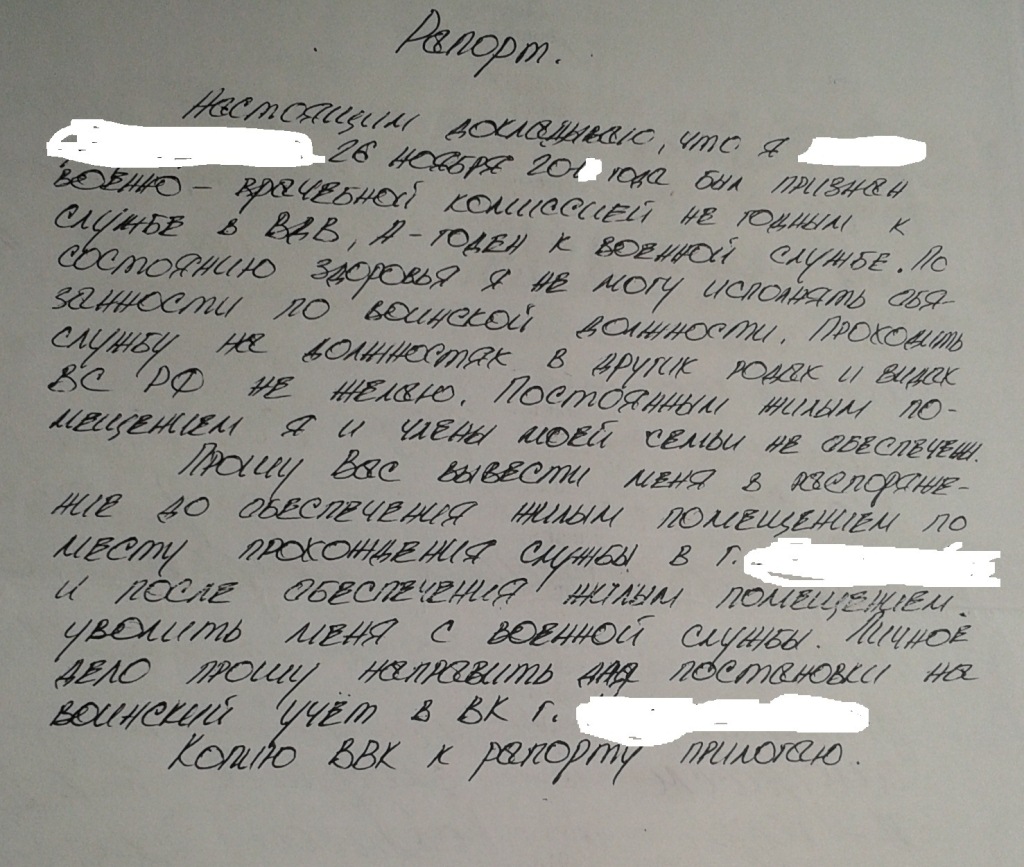 Рапорт.
Настоящим докладываю, что я
26 ноября 201 года был признан
военно-врачебной комиссией не годным к
службе в ВДВ, А-годен к военной службе. По
состоянию здоровья я не могу исполнять обя-
занности по воинской должности. Проходить
службу на должностях в других родах и видах
ВС РФ не желаю. Постоянным жилым по-
мещением я и члены моей семьи не обеспечены.
Прошу Вас вывести меня в распоряже-
ние до обеспечения жилым помещением по
месту прохождения службы в г.
и после обеспечения жилым помещением.
уволить меня с военной службы. Личное
дело прошу направить для постановки на
воинский учёт в ВК г.
Копию ВВК к рапорту прилогаю.